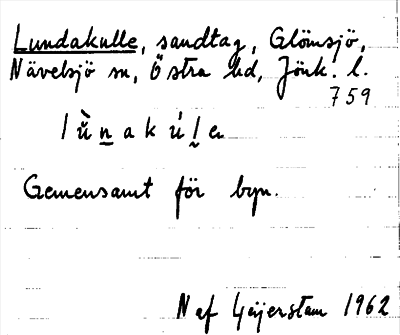 Lundakulle, sandtag, Glömsjö,
Nävelsjö sn, Östra hd, Jönk. l.
759
lùnakúle
Gemensamt för byn.
N af Geijerstam 1962